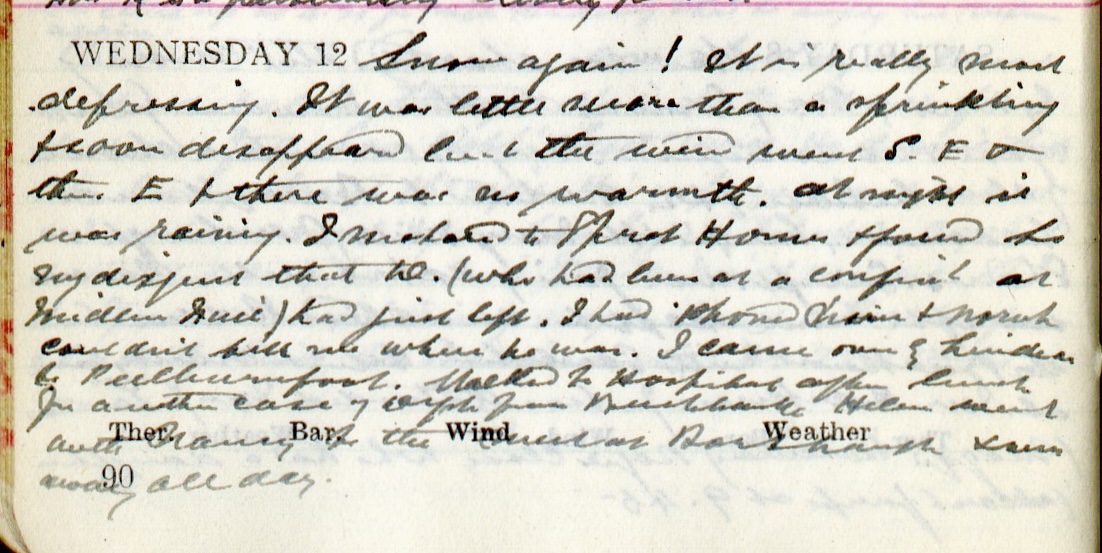 WEDNESDAY 12 Snow again! It is really most
depressing. It was little more than a sprinkling
& soon disappeared but the wind went S. E &
then E & there was no warmth. At night it
was rainy. I motored to Hown & found to
my disgust that W. (who had been at a consult at
Mill) had just left. I had phoned him & Norah
couldn't tell me where he was. I came
to Peelburnfoot. Walked to Hospital after lunch
for another case of diph from Helen went
with to the at & was
away all day.
Ther. Bar. Wind Weather
90